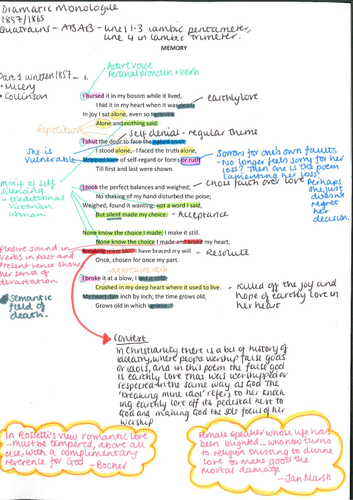 Dramatic Monologue
1857/1865
Quatrains - ABAB - lines 1-3 iambic pentameter,
line 4 in iambic trimeter.
MEMORY
Active voice
Personal pronoun + verb
Part 1 written 1857
Collinson
I nursed it in my bosom while it lived,
I hid it in my heart when it was dead;
earthly love
In joy I sat alone, even so I grieved
Alone and nothing said.
Repetition
Self denial - regular theme
I shut the door to face the naked truth,
I stood alone, – I faced the truth alone,
She is
vulnerable
Stripped bare of self-regard or forms or ruth
Till first and last were shown.
Sorrow for one's own faults
- No longer feels sorry for her
loss? Then are is the poem
lamenting her loss?
Perhaps
she just
doesn't
regret her
decision.
Motif of self
silencing
- traditional
Victorian
woman.
I took the perfect balances and weighed;
No shaking of my hand disturbed the poise;
Chose faith over love
Weighed, found it wanting: not a word I said,
But silent made my choice.
- Acceptance
None know the choice I made; I make it still.
None know the choice I made and broke my heart,
Breaking mine idol: I have braced my will
Resolute
Once, chosen for once my part.
Plosive sound in
verbs in past and
present tense show
her sense of
devastation
aggressive verb
I broke it at a blow, I laid it cold,
Crushed in my deep heart where it used to live.
My heart dies inch by inch; the time grows old,
Grows old in which I grieve.
Killed off the joy and
hope of earthly love in
her heart
Semantic
field of
death.
Context
In Christianity there is a bit of history of
idolatry, where people worship false gods
or idols, and in this poem the false god
is earthly love that was worshipped or
respected in the same way as God. The
'breaking mine idol' refers to her knock
ing earthly love off its pedestal next to
God and making God the sole focus of her
worship
In Rossetti's view romantic love
...must be tempered, above all
else, with a complimentary
reverence for God - Bocher
Female speaker whose life has
been blighted... who now turns
to religion trusting to divine
love to make good the
mortal damage
- Jan Marsh